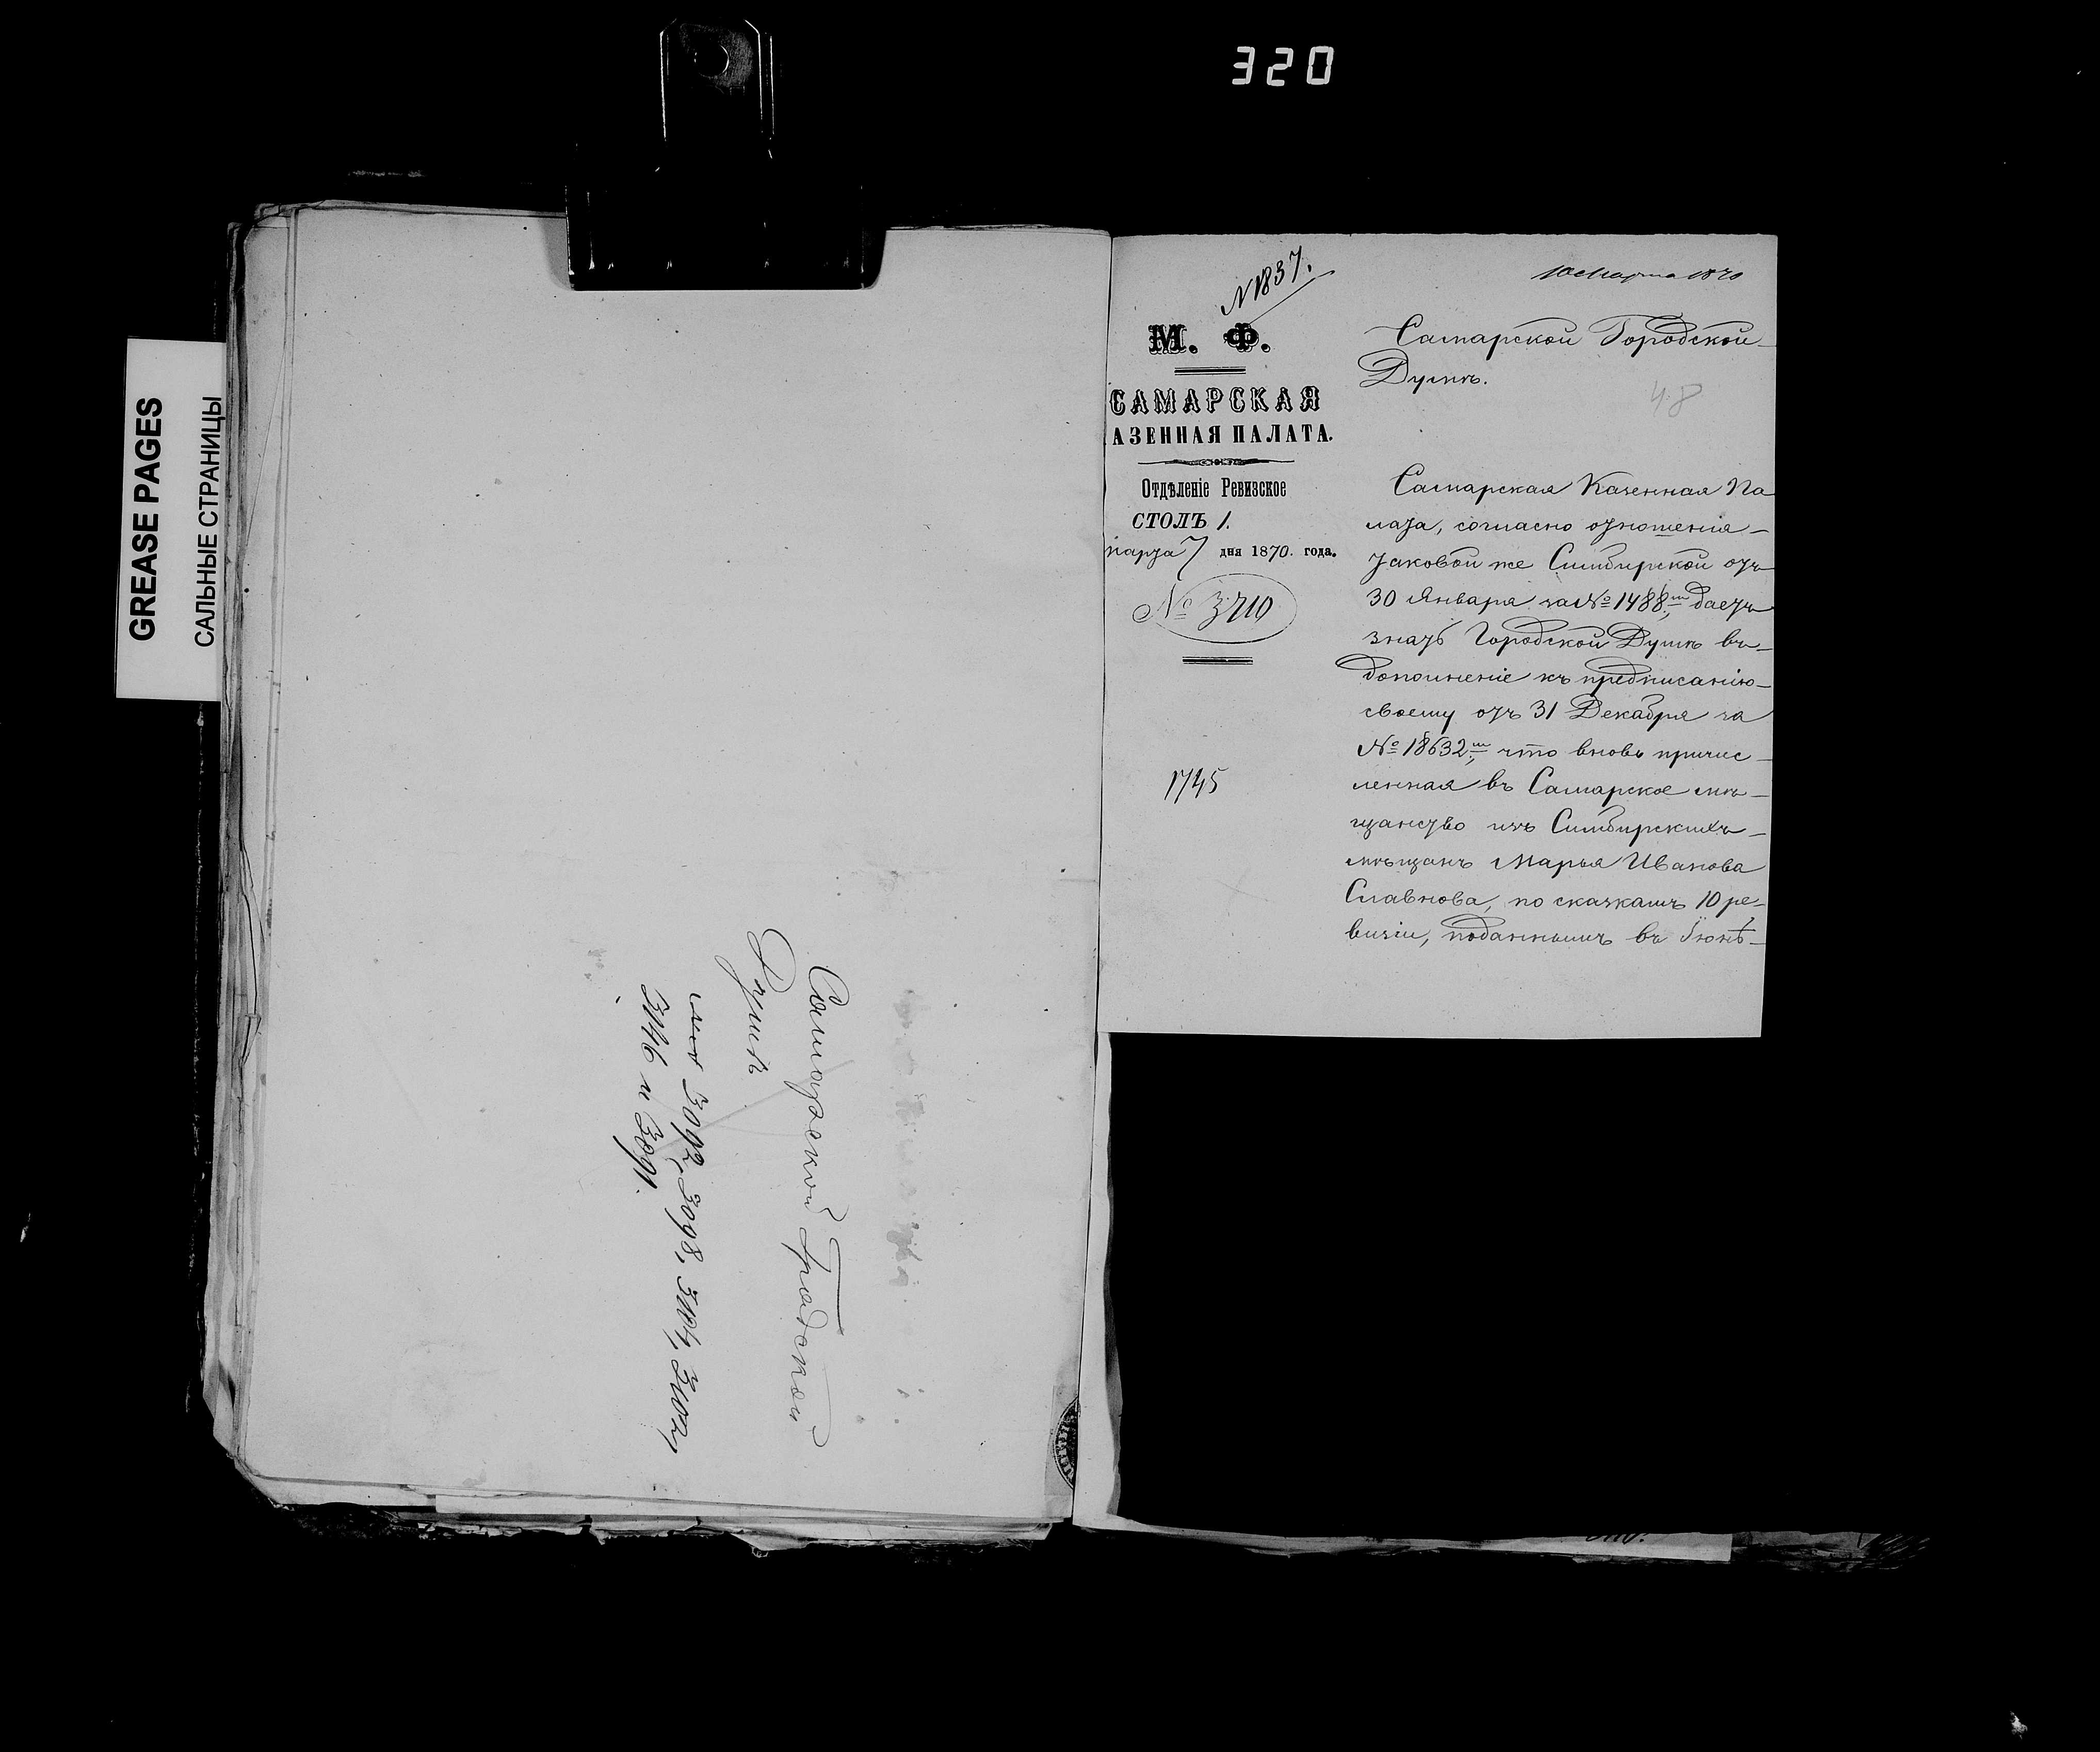 320
GREASE PAGES
САЛЬНЫЕ СТРАНИЦЫ
Самарской Градской
Думѣ
3092, 3098, 3104, 3107,
3146 и 3091.
№ 1837.
М. Ф.
САМАРСКАЯ
АЗЕННАЯ ПАЛАТА.
Отдѣленіе Ревизское
СТОЛЪ 1.
марта 7 дня 1870. года.
№ 3710
1745
10 Марта 1870
Самарской Городской
Думѣ.
48
Самарская Казенная Па
лата, согласно отношенія
таковой же Симбирской отъ
30 Января за № 1488м, даетъ
знать Городской Думѣ въ
дополненіе къ предписанію
своему отъ 31 Декабря за
№ 18632м, что вновь причис
ленная въ Самарское мѣ
щанство изъ Симбирскихъ
мѣщанъ Марья Иванова
Славнова, по сказкамъ 10 ре-
визіи, поданнымъ въ Іюнѣ